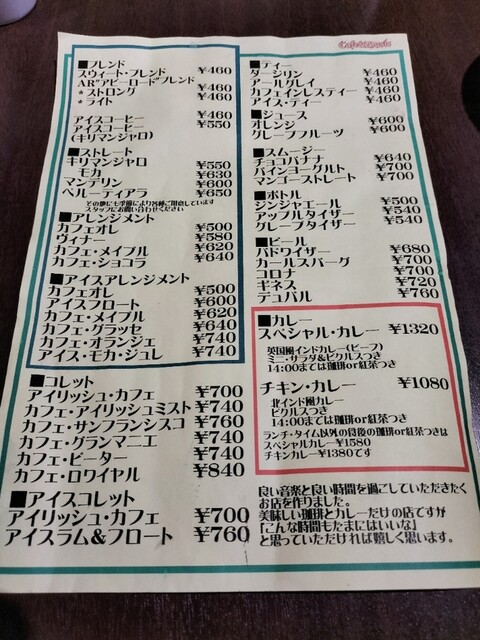 ■ブレンド
スウィート・ブレンド ¥460
AR"アビーロード"ブレンド
★ストロング ¥460
★ライト ¥460
アイスコーヒー ¥460
アイスコーヒー ¥550
(キリマンジャロ)
■ストレート
キリマンジャロ ¥550
モカ ¥630
マンデリン ¥600
ペルーティアラ ¥650
その他にも季節により各種ご用意しています
スタッフにお問い合わせください
■アレンジメント
カフェオレ ¥500
ヴィナー ¥580
カフェ・メイプル ¥620
カフェ・ショコラ ¥640
■アイスアレンジメント
カフェオレ ¥500
アイスフロート ¥600
カフェ・メイプル ¥620
カフェ・グラッセ ¥640
カフェ・オランジェ ¥740
アイス・モカ・ジュレ ¥740
■コレット
アイリッシュ・カフェ ¥700
カフェ・アイリッシュミスト ¥740
カフェ・サンフランシスコ ¥760
カフェ・グランマニエ ¥740
カフェ・ピーター ¥740
カフェ・ロワイヤル ¥840
■アイスコレット
アイリッシュ・カフェ ¥700
アイスラム&フロート ¥760
■ティー
ダージリン ¥460
アールグレイ ¥460
カフェインレスティー ¥460
アイス・ティー ¥460
■ジュース
オレンジ ¥600
グレープフルーツ ¥600
■スムージー
チョコバナナ ¥640
パインヨーグルト ¥700
マンゴーストレート ¥700
■ボトル
ジンジャエール ¥500
アップルタイザー ¥540
グレープタイザー ¥540
■ビール
バドワイザー ¥680
カールスバーグ ¥700
コロナ ¥700
ギネス ¥720
デュバル ¥760
■カレー
スペシャル・カレー ¥1320
英国風インドカレー(ビーフ)
ミニ・サラダ&ピクルスつき
14:00までは珈琲or紅茶つき
チキン・カレー ¥1080
北インド風カレー
ピクルスつき
14:00までは珈琲or紅茶つき
ランチ・タイム以外の食後の珈琲or紅茶つきは
スペシャルカレー¥1580
チキンカレー¥1380です
良い音楽と良い時間を過ごしていただきたく
お店を作りました。
美味しい珈琲とカレーだけの店ですが
「こんな時間もたまにはいいな」
と思っていただければ嬉しく思います。